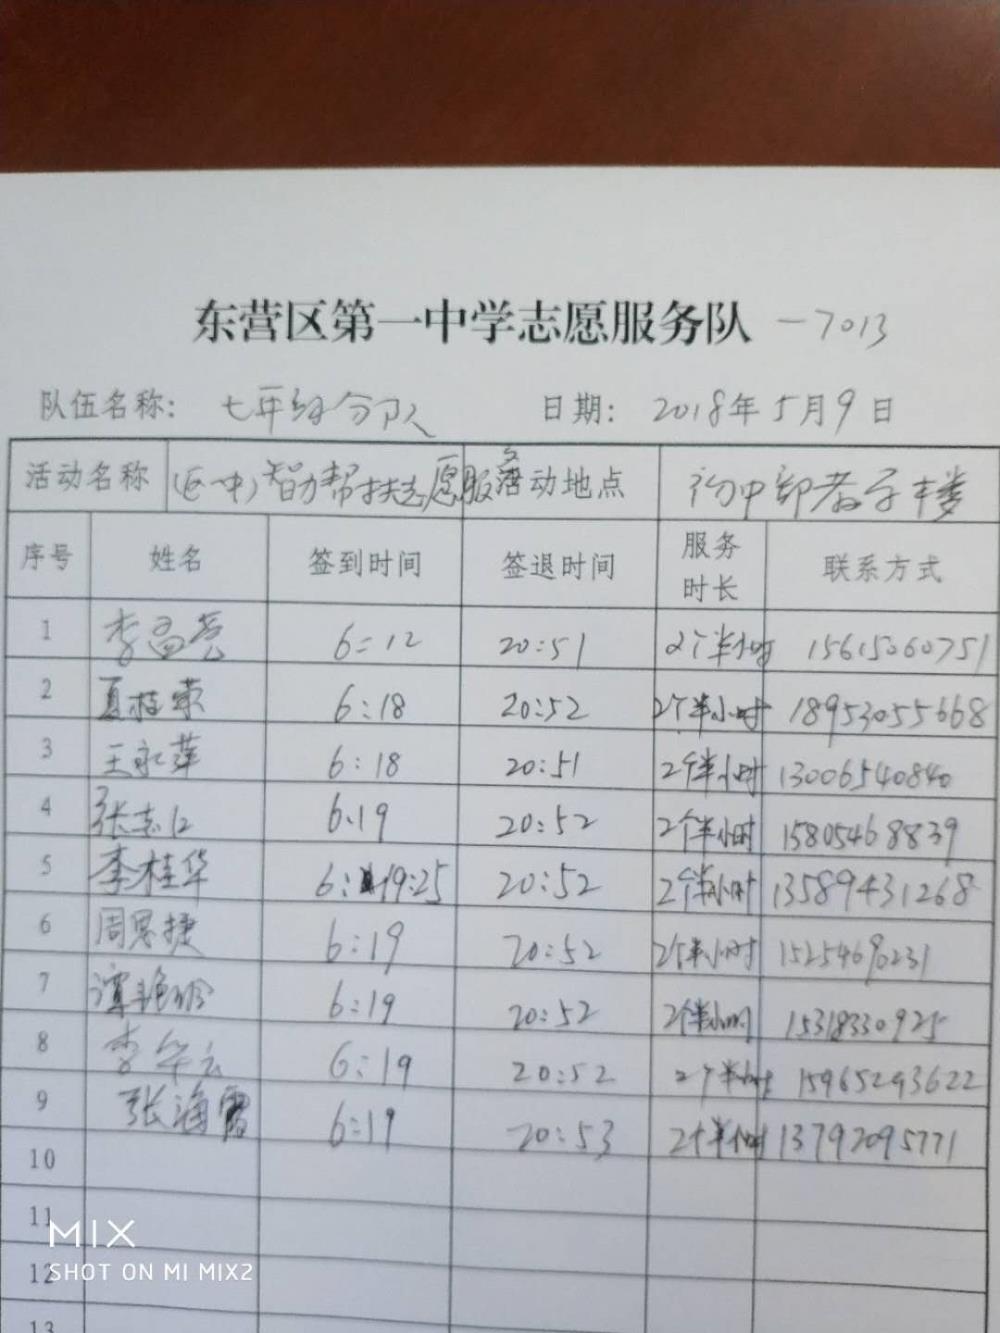 东营区第一中学志愿服务队 -7013
队伍名称: 七年级分队 日期: 2018年5月9日
活动名称 (区一中)智力帮扶志愿服务 活动地点 初中部教学楼
序号 姓名 签到时间 签退时间 服务时长 联系方式
1 李昌亮 6:12 20:51 2个半小时 15615060751
2 夏桂荣 6:18 20:52 2个半小时 18953055668
3 王永萍 6:18 20:51 2个半小时 13006540840
4 张志江 6.19 20:52 2个半小时 15805468839
5 李桂华 6:19:25 20:52 2个半小时 13589431268
6 周思捷 6:19 20:52 2个半小时 15254690231
7 谭艳玲 6:19 20:52 2个半小时 15318330925
8 李华云 6:19 20:52 2个半小时 15965293622
9 张海霞 6:19 20:53 2个半小时 13792095771
10
11
12
13
MIX
SHOT ON MI MIX2